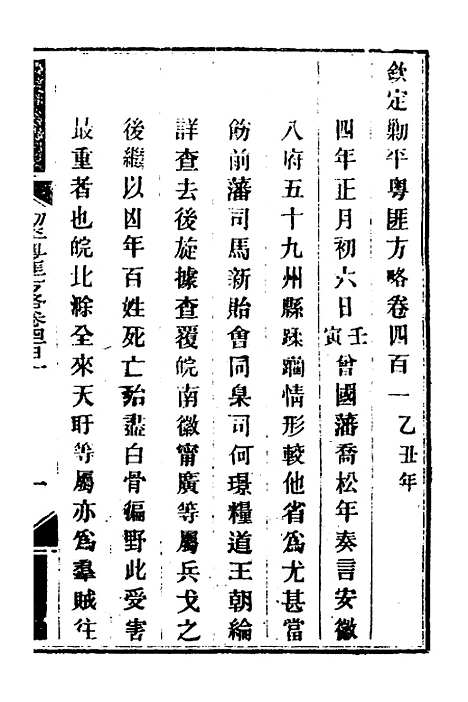 欽定勦平粤匪方略卷四百一乙丑年
四年正月初六日壬寅曾國藩喬松年奏言安徽
八府五十九州縣蹂躪情形較他省爲尤甚當
飭前藩司馬新貽會同臬司何璟糧道王朝綸
詳查去後旋據查覆皖南徽甯廣等屬兵戈之
後繼以凶年百姓死亡殆盡白骨徧野此受害
最重者也皖北滁全來天盱等屬亦爲羣賊往